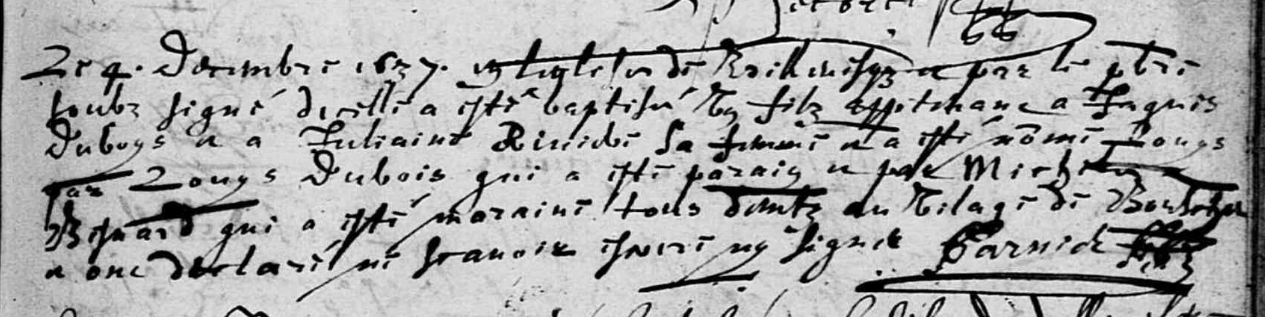 Le 4. Decembre 1637. en leglise de et par le pbre
soubz signé dicelle a esté baptisé Ung filz appartenant a Jaques
Duboys et a Juliaine sa femme et a esté nōmé Louys
par Louys Dubois qui a esté parain et par Michelle
Besnard qui a esté maraine tous deux du vilage de
et ont declaré ne scavoir escrire ny signer Garnier